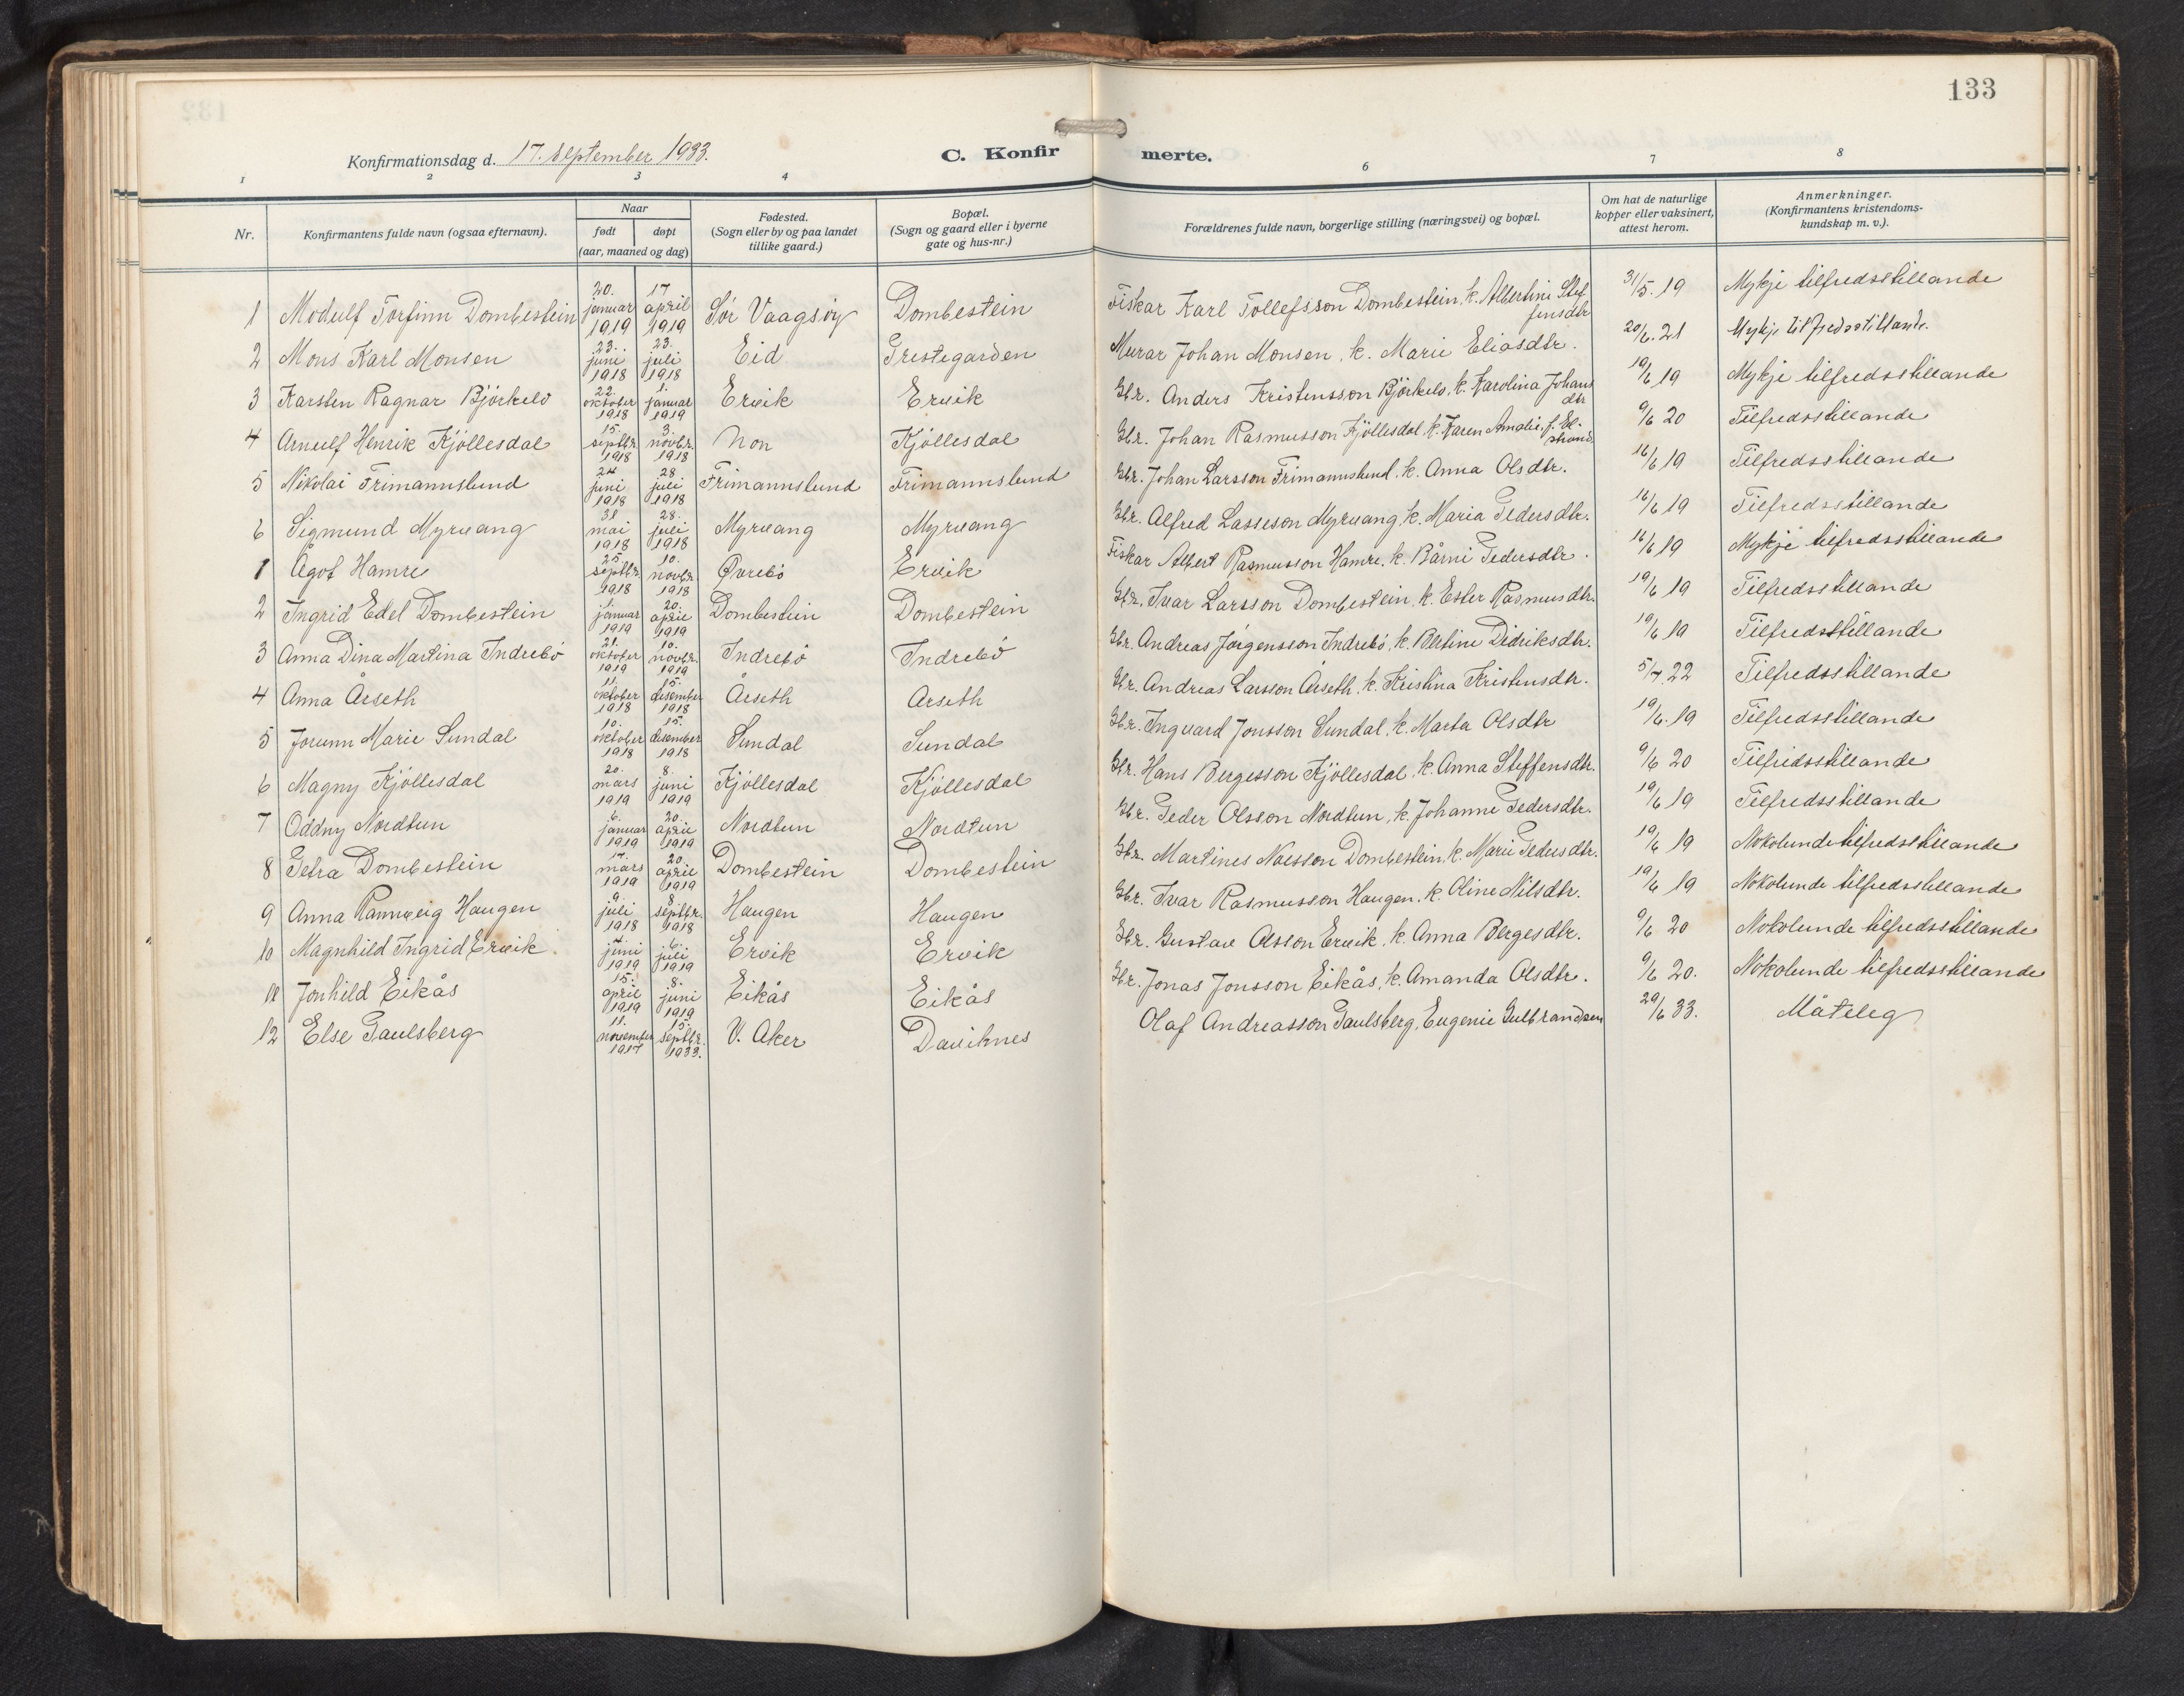 133
Konfirmationsdag d. 17. September 1933.
C. Konfirmerte.
1 2 3 4 6 7 8
Nr. | Konfirmantens fulde navn (ogsaa efternavn). | Naar født døpt (aar, maaned og dag) | Fødested. (Sogn eller by og paa landet tillike gaard.) | Bopæl. (Sogn og gaard eller i byerne gate og hus-nr.) | Forældrenes fulde navn, borgerlige stilling (næringsvei) og bopæl. | Om hat de naturlige kopper eller vaksinert, attest herom. | Anmerkninger. (Konfirmantens kristendomskundskap m. v.).
1 Modulf Torfinn Dombestein 20. januar 1919 17 april 1919 Sør Vaagsøy Dombestein Fiskar Karl Tollefsson Dombestein, k. Albertine Steffensdtr 31/5. 19 Mykje tilfredsstillande
2 Mons Karl Monsen 23. juni 1918 23. juli 1918 Eid Prestegarden Murar Johan Monsen, k. Marie Eliasdtr. 20/6. 21 Mykje tilfredsstillande.
3 Karsten Ragnar Björkelo 22. oktober 1918 1. januar 1919 Ervik Ervik Gbr. Anders Kristensson Björkelo, k. Karolina Johansdtr 19/6 19 Mykje tilfredsstillande
4 Arnulf Henrik Kjöllesdal 15. septbr. 1918 3. novbr. 1918 Non Kjöllesdal Gbr. Johan Rasmusson Kjöllesdal k. Karen Amalie f. Elstrand 9/6 20 Tilfredsstillande
5 Nikolai Frimannslund 24 juni 1918 28. juli 1918 Frimannslund Frimannslund Gbr. Johan Larsson Frimannslund, k. Anna Olsdtr. 16/6 19 Tilfredsstillande
6 Sigmund Myrvang 31 mai 1918 28. juli 1918 Myrvang Myrvang Gbr. Alfred Lasseson Myrvang k. Maria Pedersdtr. 16/6 19 Tilfredsstillande
1 Ågot Hamre 25. septbr. 1918 10. novbr. 1918 Øvrebö Ervik Fiskar Albert Rasmusson Hamre, k. Bårni Pedersdtr. 16/6 19 Mykje tilfredsstillande
2 Ingrid Edel Dombestein 1. januar 1919 20. april 1919 Dombestein Dombestein Gbr. Ivar Larsson Dombestein, k. Ester Rasmusdtr. 19/6 19 Tilfredsstillande
3 Anna Dina Martina Indrebö 21. oktober 1919 10. novbr. 1919 Indrebö Indrebö Gbr. Andreas Jörgensson Indrebö, k. Bertine Didriksdtr. 19/6 19 Tilfredsstillande
4 Anna Årseth 11. oktober 1918 15. desember 1918 Årseth Arseth Gbr. Andreas Larsson Årseth, k. Kristina Kristensdtr. 5/7. 22 Tilfredsstillande
5 Jorunn Marie Sundal 10. oktober 1918 15. desember 1918 Sundal Sundal Gbr. Ingvard Jonsson Sundal, k. Marta Olsdtr 19/6. 19 Tilfredsstillande
6 Magny Kjöllesdal 20. mars 1919 8. juni 1919 Kjöllesdal Kjöllesdal Gbr. Hans Bergesson Kjöllesdal, k. Anna Steffensdtr. 9/6 20 Tilfredsstillande
7 Oddny Nordtun 6. januar 1919 20. april 1919 Nordtun Nordtun Gbr. Peder Olsson Nordtun, k. Johanne Pedersdtr. 19/6 19 Tilfredsstillande
8 Petra Dombestein 17. mars 1919 20. april 1919 Dombestein Dombestein Gbr. Martines Nilsson Dombestein, k. Marie Pedersdtr. 19/6 19 Nokolunde tilfredsstillande
9 Anna Rannveig Haugen 9. juli 1918 8. septbr. 1918 Haugen Haugen Gbr. Ivar Rasmusson Haugen, k. Oline Nilsdtr. 19/6 19 Nokolunde tilfredsstillande
10 Magnhild Ingrid Ervik 7. juni 1919 6. juli 1919 Ervik Ervik Gbr. Gustav Olsson Ervik, k. Anna Bergesdtr. 9/6 20 Nokolunde tilfredsstillande
11 Jonhild Eikås 15. april 1919 8. juni 1919 Eikås Eikås Gbr. Jonas Jonsson Eikås, k. Amanda Olsdtr. 9/6 20. Nokolunde tilfredsstillande
12 Else Paulsberg 11. november 1917 15. septbr. 1933. V. Aker Daviknes Olaf Andreasson Paulsberg, Eugenie Gulbrandsen 29/6 33. Måteleg